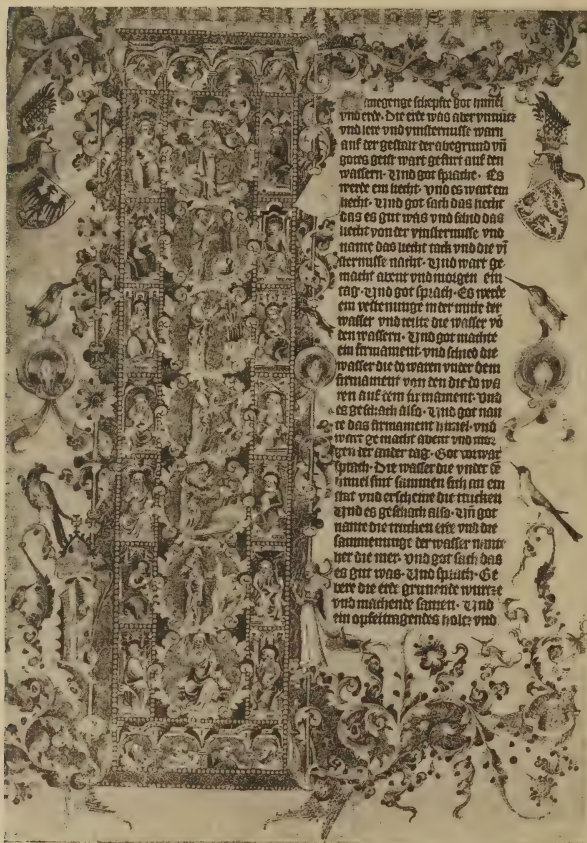 anegenge schepfte got himel
vnd erde. Die erde was aber vnnutz
vnd lere vnd vinsternusse warn
auf der gestalt der abegrund vn̄
gotes geist wart gefurt auf den
wassern. Und got sprache. Es
werde ein liecht. vnd es wart ein
liecht. Und got sach das liecht
das es gut was vnd schid das
liecht von der vinsternusse vnd
nante das liecht tack vnd die vī
sternusse nacht. Und wart ge
macht abent vnd morgen ein
tag. Und got sprach. Es werde
ein vestenunge in der mitte der
wasser vnd teilte die wasser vō
den wassern. Und got machte
ein firmament. vnd schied die
wasser die do waren vnder dem
firmament von den die do wa
ren auf dem firmament. vnd
es geschach also. Und got nan
te das firmament himel. vnd
wart gemacht abent vnd mor
gen der ander tag. Got vorwar
sprach. Die wasser die vnder dē
himel sint sammen sich an ein
stat vnd erscheine die trucken
Und es geschach also. Vn̄ got
nante die trucken erde vnd die
sammenunge der wasser nante
her die mer. vnd got sach das
es gut was. Und sprach. Ge
bere die erde grunende wurtze
vnd machende samen. Und
ein opfeltragendes holtz vnd